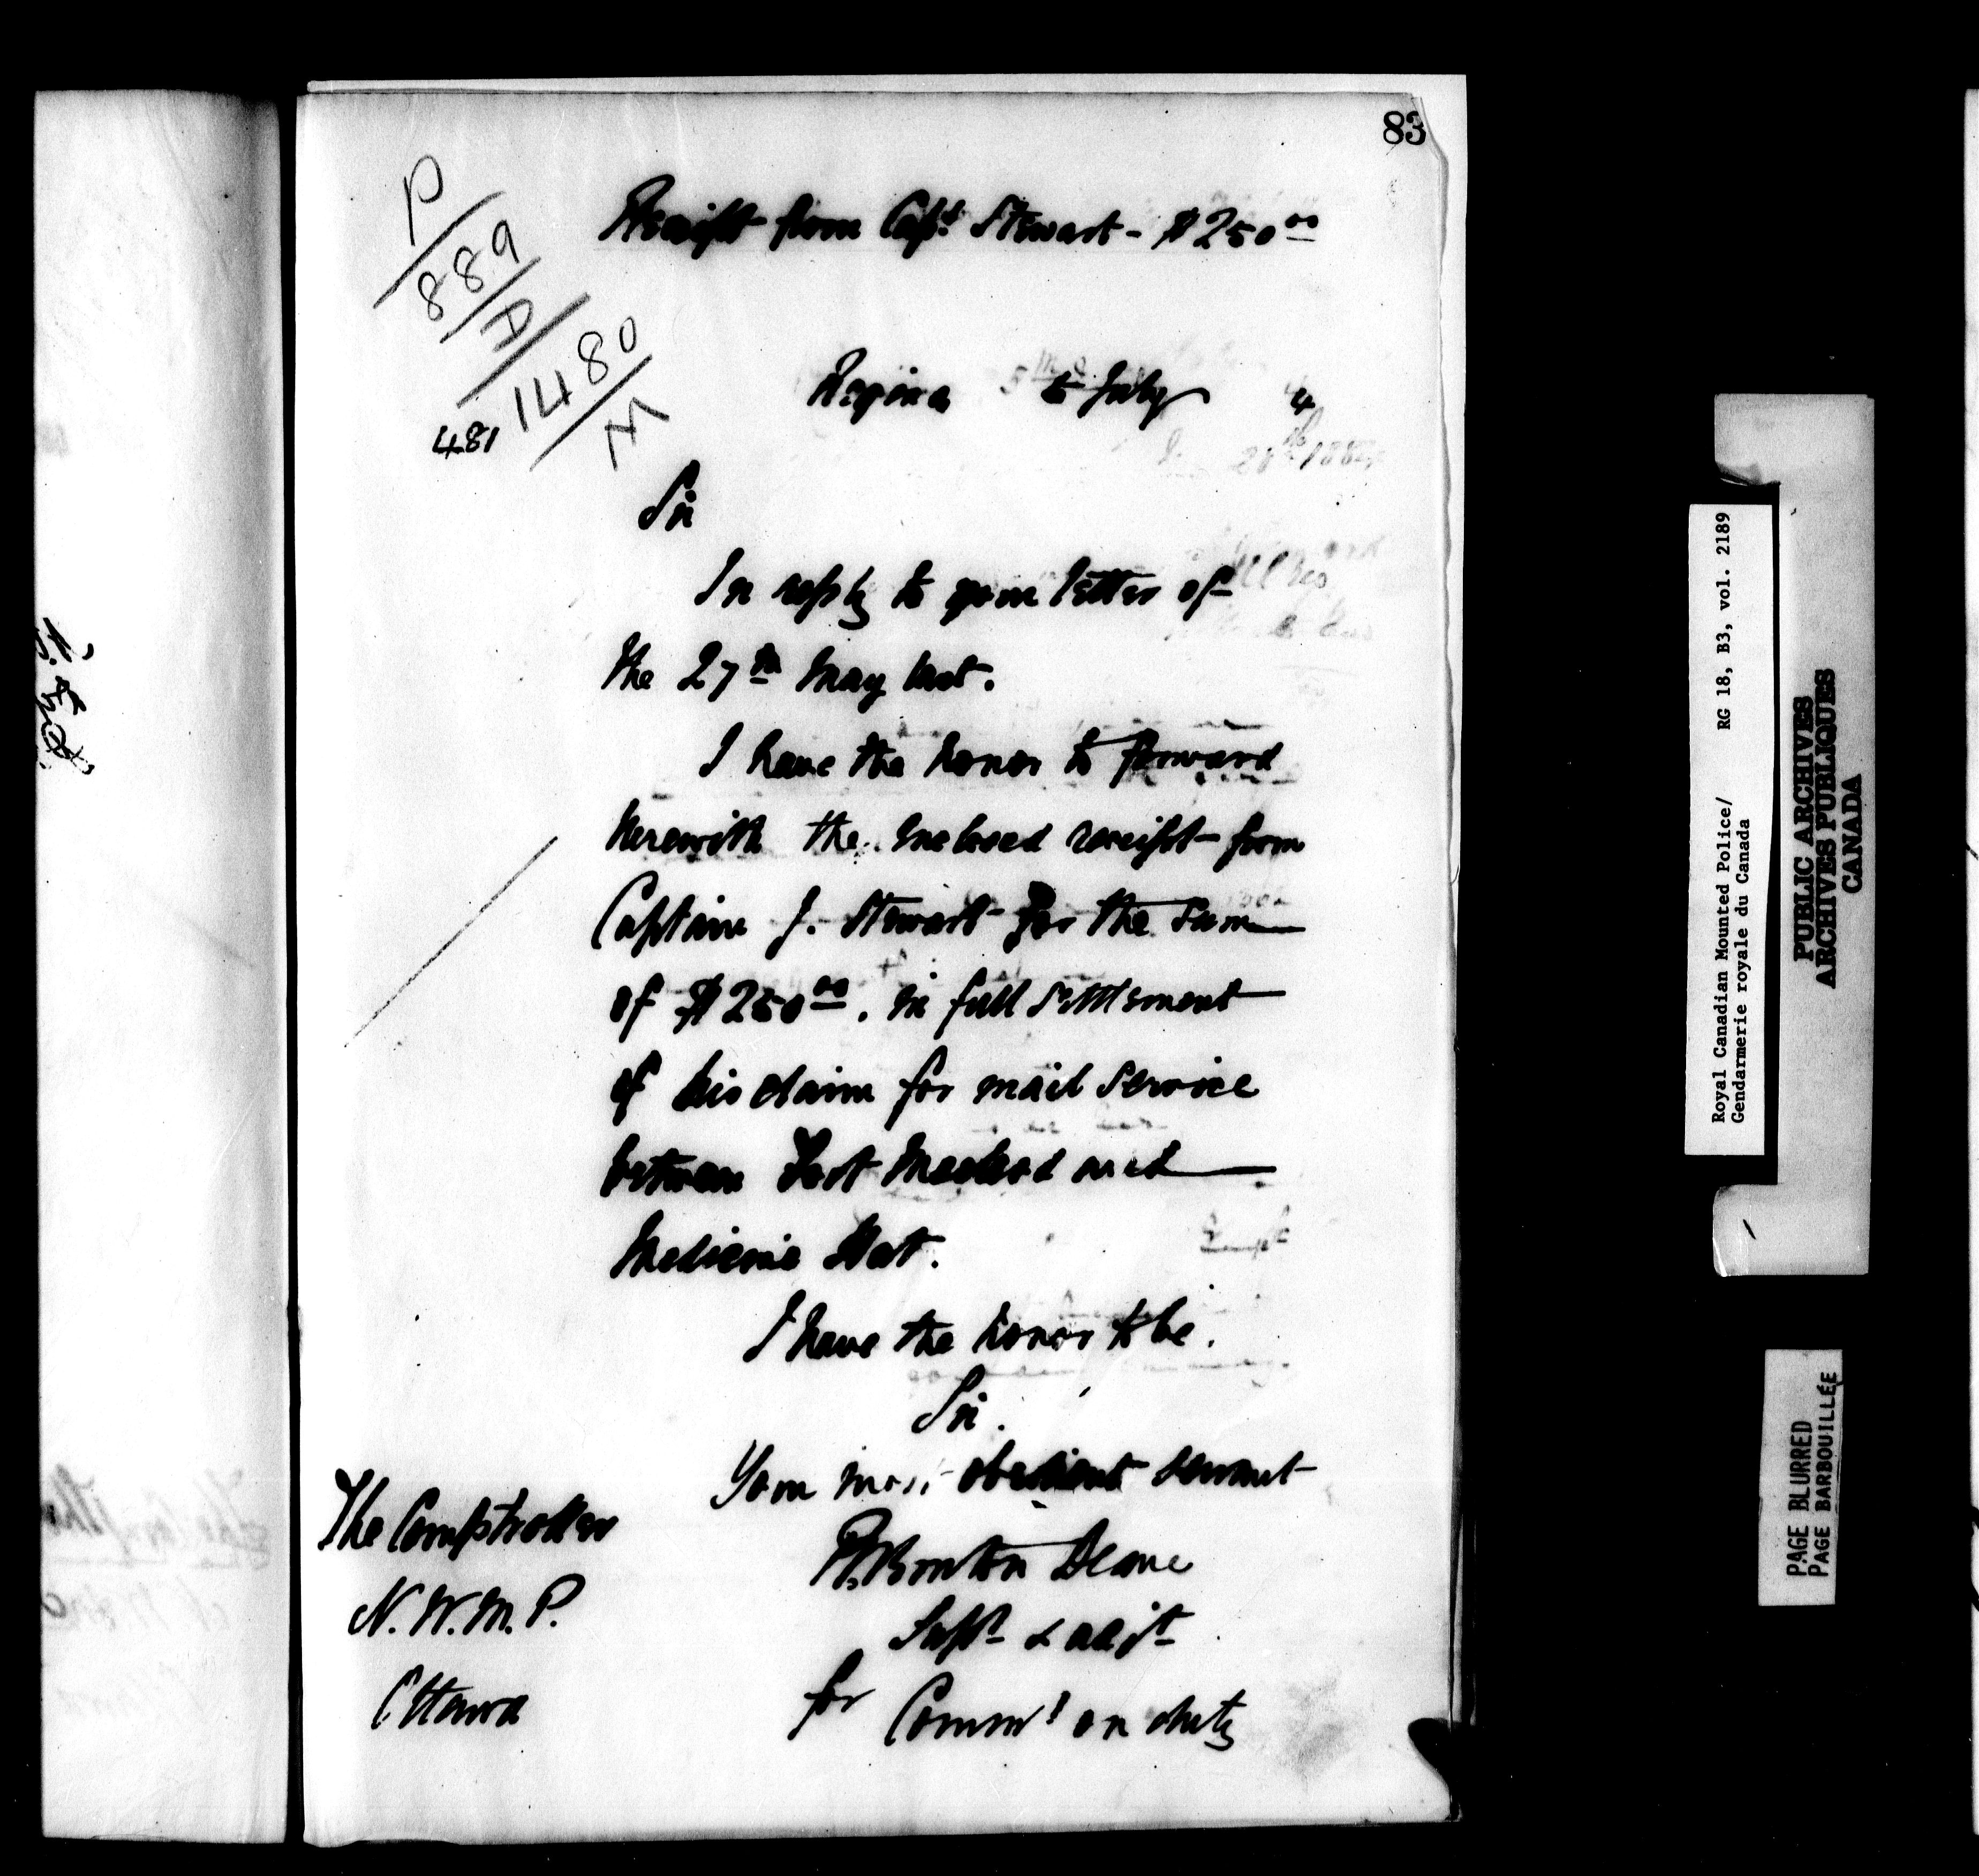 83
P
889
A
1480
M
481
Receipt from Capt. Stewart - $250.00
Regina July 4
Sir
In reply to your letter of
the 27th May last.
I have the honor to forward
herewith the inclosed receipt from
Captain J. Stewart for the sum
of $250.00. in full settlement
of his claim for mail service
between Fort Macleod and
Medicine Hat.
I have the honor to be.
Sir.
Your most obedient servant
R. Burton Deane
Supt & adjt
for Commr on duty
The Comptroller
N.W.M.P.
Ottawa
Royal Canadian Mounted Police/ RG 18, B3, vol. 2189
Gendarmerie royale du Canada
PUBLIC ARCHIVES
ARCHIVES PUBLIQUES
CANADA
PAGE BLURRED
PAGE BARBOUILLÉE